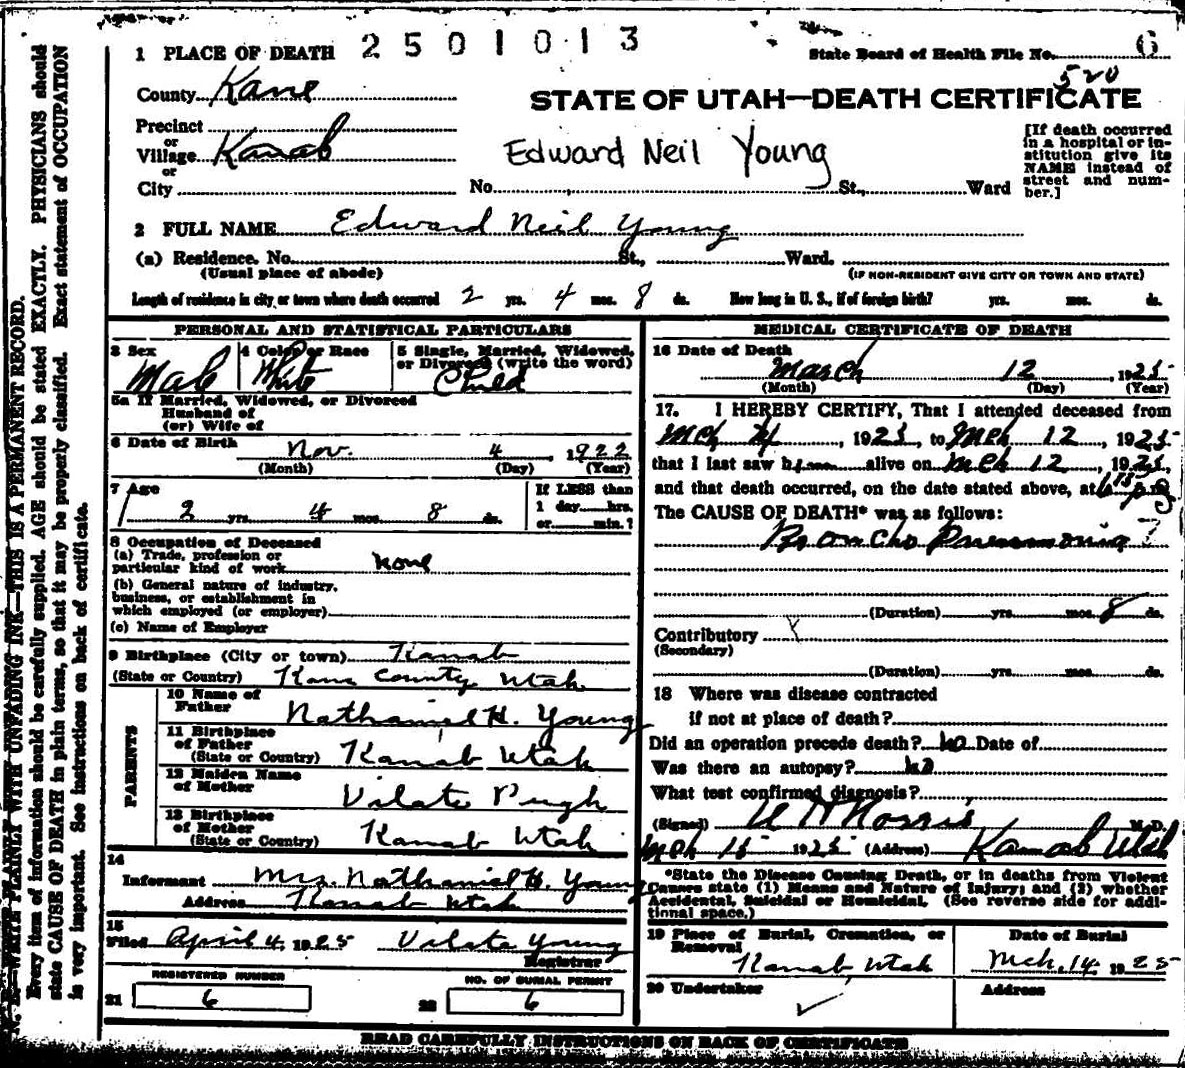 2501013
State Board of Health File No. 6
520
1 PLACE OF DEATH
County Kane
STATE OF UTAH—DEATH CERTIFICATE
Precinct
or
Village Kanab
or
City
Edward Neil Young
No. St., Ward
[If death occurred
in a hospital or in-
stitution give its
NAME instead of
street and num-
ber.]
2 FULL NAME Edward Neil Young
(a) Residence. No. St., Ward.
(Usual place of abode) (IF NON-RESIDENT GIVE CITY OR TOWN AND STATE)
Length of residence in city or town where death occurred 2 yrs. 4 mos. 8 ds. How long in U. S., if of foreign birth? yrs. mos. ds.
PERSONAL AND STATISTICAL PARTICULARS
3 Sex
Male
4 Color or Race
White
5 Single, Married, Widowed,
or Divorced (write the word)
Child
5a If Married, Widowed, or Divorced
Husband of
(or) Wife of
6 Date of Birth
Nov. 4, 1922
(Month) (Day) (Year)
7 Age
2 yrs. 4 mos. 8 ds.
If LESS than
1 day hrs.
or min.?
8 Occupation of Deceased
(a) Trade, profession or
particular kind of work none
(b) General nature of industry,
business, or establishment in
which employed (or employer)
(c) Name of Employer
9 Birthplace (City or town) Kanab
(State or Country) Kane County Utah
PARENTS
10 Name of
Father Nathaniel H. Young
11 Birthplace
of Father
(State or Country) Kanab Utah
12 Maiden Name
of Mother Vilate Pugh
13 Birthplace
of Mother
(State or Country) Kanab Utah
14
Informant Mrs. Nathaniel H. Young
Address Kanab Utah
15
Filed April 4, 1925 Vilate Young
Registrar
REGISTERED NUMBER
21 6
NO. OF BURIAL PERMIT
22 6
MEDICAL CERTIFICATE OF DEATH
16 Date of Death
March 12, 1925
(Month) (Day) (Year)
17. I HEREBY CERTIFY, That I attended deceased from
Mch 4, 1925, to Mch 12, 1925
that I last saw him alive on Mch 12, 1925,
and that death occurred, on the date stated above, at 6 15 p m
The CAUSE OF DEATH* was as follows:
Broncho Pneumonia
(Duration) yrs. mos. 8 ds.
Contributory
(Secondary)
(Duration) yrs. mos. ds.
18 Where was disease contracted
if not at place of death?
Did an operation precede death? no Date of
Was there an autopsy? no
What test confirmed diagnosis?
(Signed) Norris M. D.
Mch 15 1925 (Address) Kanab Utah
*State the Disease Causing Death, or in deaths from Violent
Causes state (1) Means and Nature of Injury; and (2) whether
Accidental, Suicidal or Homicidal. (See reverse side for addi-
tional space.)
19 Place of Burial, Cremation, or
Removal
Kanab, Utah
Date of Burial
Mch. 14, 1925
20 Undertaker
Address
READ CAREFULLY INSTRUCTIONS ON BACK OF CERTIFICATE
N. B.—WRITE PLAINLY WITH UNFADING INK—THIS IS A PERMANENT RECORD.
Every item of information should be carefully supplied. AGE should be stated EXACTLY. PHYSICIANS should
state CAUSE OF DEATH in plain terms, so that it may be properly classified. Exact statement of OCCUPATION
is very important. See instructions on back of certificate.